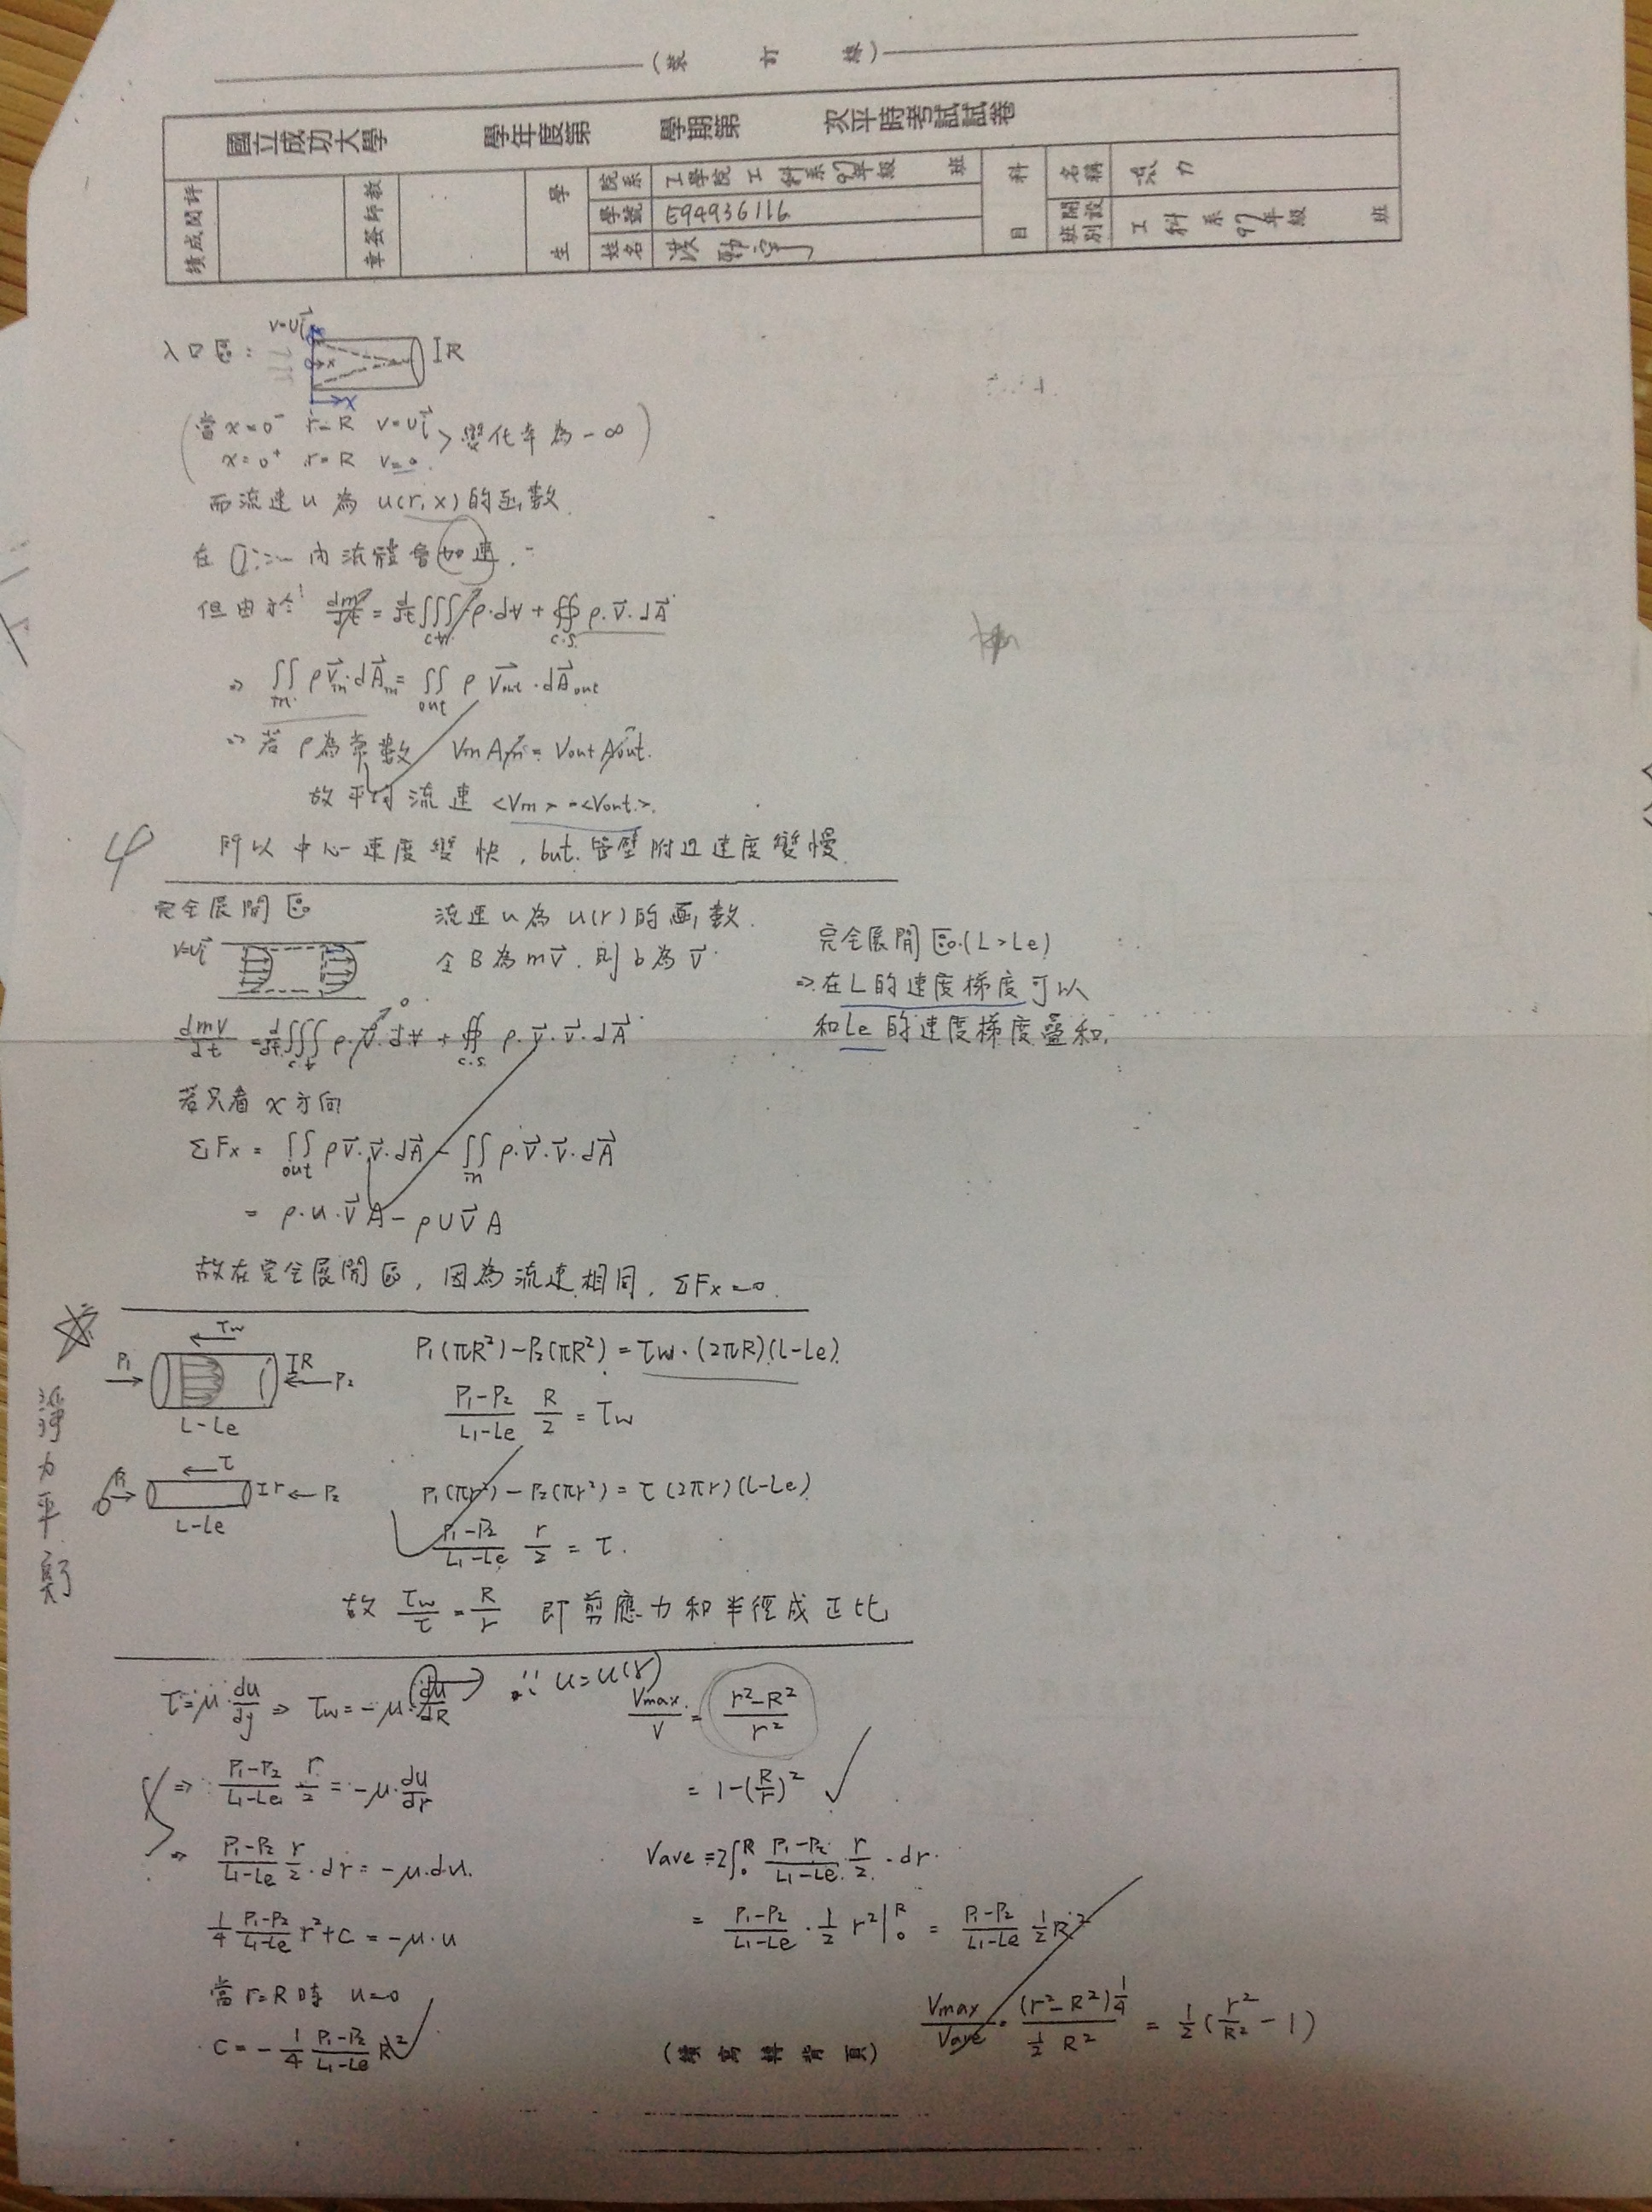 (裝 訂 線)
國立成功大學 學年度第 學期第 次平時考試試卷
績成閱評
章簽師教
學生
院系 工學院 工科系97年級 班
學號 E94936116
姓名
科目
名稱 流力
班別 開設 工科系97年級 班
V=U i⃗
入口區: IR
x
(當 x=0⁻ r=R v=U i⃗ > 變化率為 -∞)
x=0⁺ r=R v=0.
而流速 u 為 u(r,x)的函數.
在 內流體會加速.
但由於 dm/dt = d/dt∭ρ·dV + ∯ρ·V⃗·dA⃗
c.v. c.s.
⇒ ∬ρV⃗in·dA⃗in = ∬ρ V⃗out·dA⃗out
in out
⇒ 若 ρ為常數 Vin Ain = Vout Aout.
故平均流速 <Vin> = <Vout>.
4
所以中心速度變快, but. 管壁附近速度變慢
完全展開區
V=U i⃗
流速 u 為 u(r)的函數.
令 B 為 mV⃗. 則 b 為 V⃗.
完全展開區.(L>Le)
⇒ 在 L 的速度梯度可以
和 Le 的速度梯度疊和.
dmv/dt = d/dt∭ρ·V⃗·dV + ∯ρ·V⃗·V⃗·dA⃗
c.v. 0 c.s.
若只看 x 方向
ΣFx = ∬ρV⃗·V⃗·dA⃗ - ∬ρ·V⃗·V⃗·dA⃗
out in
= ρ·u·V⃗ A - ρUV⃗ A
故在完全展開區, 因為流速相同, ΣFx=0.
淨力平衡
τw
P1 IR P2
L-Le
P1(πR²)-P2(πR²) = τw·(2πR)(L-Le).
(P1-P2)/(L1-Le) R/2 = τw
τ
P1 Ir P2
L-Le
P1(πr²)-P2(πr²) = τ(2πr)(L-Le)
(P1-P2)/(L1-Le) r/2 = τ.
故 τw/τ = R/r 即剪應力和半徑成正比
τ=μ·du/dy ⇒ τw=-μ·du/dR ∴ u=u(r)
⇒ (P1-P2)/(L1-Le) r/2 = -μ·du/dr
⇒ (P1-P2)/(L1-Le) r/2·dr = -μ·du.
1/4 (P1-P2)/(L1-Le) r²+C = -μ·u
當 r=R 時 u=0
C = -1/4 (P1-P2)/(L1-Le) R²
Vmax/V = (r²-R²)/r²
= 1-(R/r)²
Vave = 2∫₀ᴿ (P1-P2)/(L1-Le)·r/2·dr.
= (P1-P2)/(L1-Le)·1/2 r²|₀ᴿ = (P1-P2)/(L1-Le) 1/2 R²
Vmax/Vave = (r²-R²)1/4 / (1/2 R²) = 1/2(r²/R² - 1)
(續寫轉背頁)